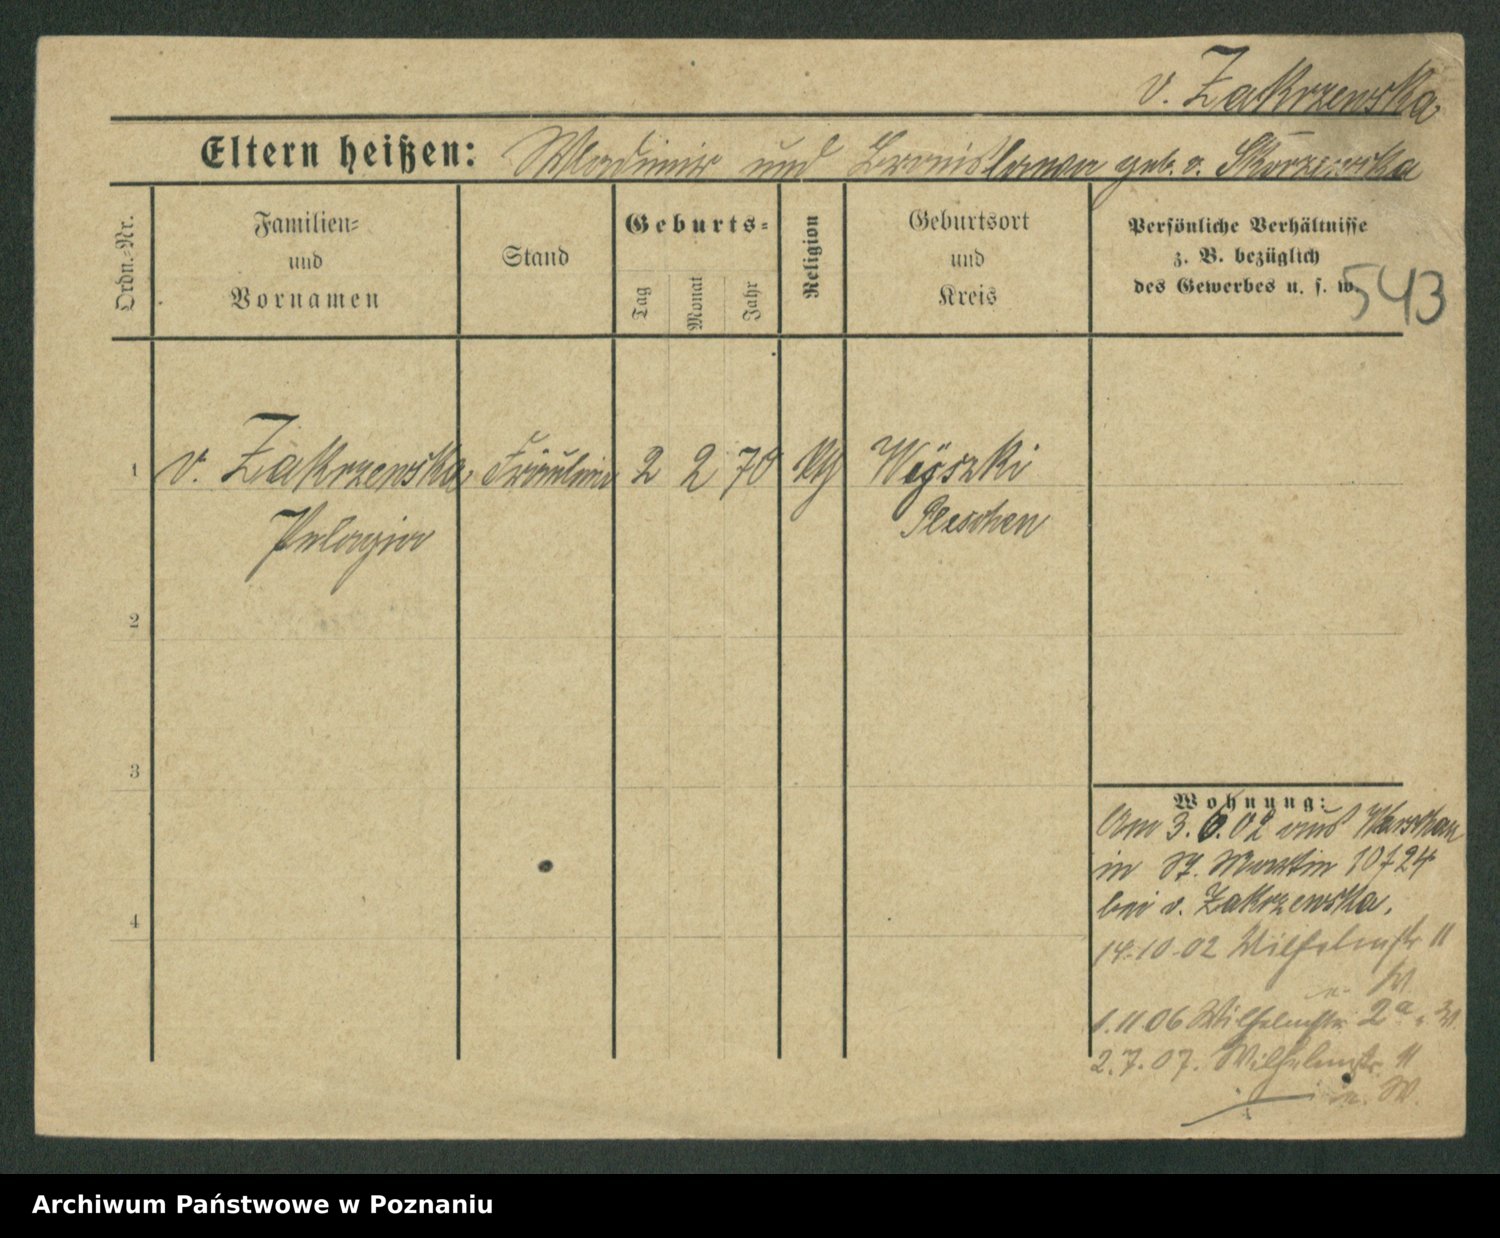 v. Zakrzewska
Eltern heißen: Wladimir und Bronislawa geb. v. Skorzewska
Ordn.-Nr.
Familien-
und
Vornamen
Stand
Geburts-
Tag
Monat
Jahr
Religion
Geburtsort
und
Kreis
Persönliche Verhältnisse
z. B. bezüglich
des Gewerbes u. s. w.
543
1 v. Zakrzewska Fräulein 2 2 70 kth
Pelagia
Pleschen
2
3
4
Wohnung:
Am 3.6.02 aus Warschau
in St. Martin 10/24
bei v. Zakrzewska.
14.10.02 Wilhelmstr 11
W.
1.11.06 Wilhelmstr. 2a
2.7.07. Wilhelmstr. 11
W.
Archiwum Państwowe w Poznaniu